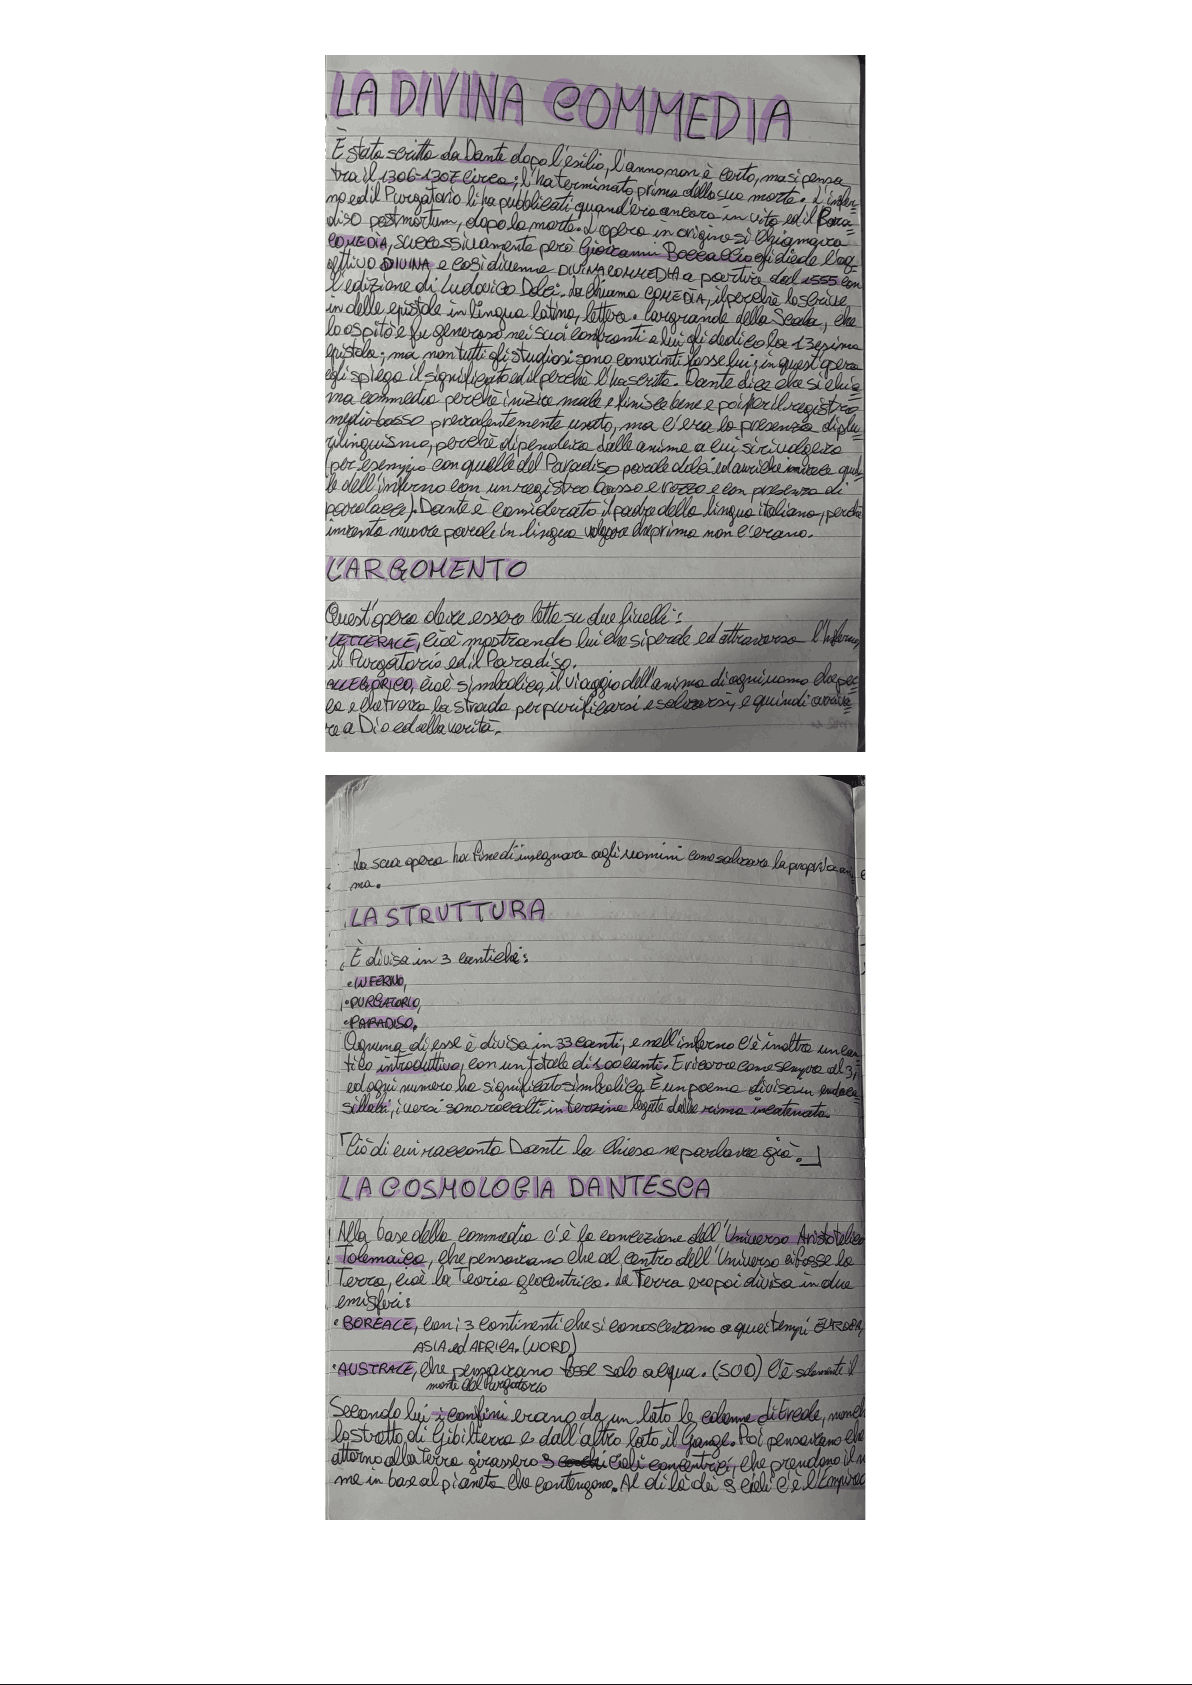 LA DIVINA COMMEDIA
È stata scritta da Dante dopo l'esilio, l'anno non è certo, ma si pensa
tra il 1306-1307 circa; l'ha terminata prima della sua morte. L'infer=
no ed il Purgatorio li ha pubblicati quand'era ancora in vita ed il Para=
diso postmortum, dopo la morte. L'opera in origine si chiamava
COMEDÌA, successivamente però Giovanni Boccaccio gli diede l'ag=
gettivo DIVINA e così divenne DIVINA COMMEDIA a partire dal 1555 con
l'edizione di Ludovico Dolci. La chiama COMEDÌA, il perchè lo scrisse
in delle epistole in lingua latina, lettera. Cangrande della Scala, che
lo ospitò e fu generoso nei suoi confronti a lui gli dedicò la 13esima
epistola; ma non tutti gli studiosi sono convinti fosse lui; in quest'opera
egli spiega il significato ed il perchè l'ha scritta. Dante dice che si chia=
ma commedia perchè inizia male e finisce bene e poi per il registro
medio-basso prevalentemente usato, ma c'era la presenza di plu=
rilinguismo, perchè dipendeva dalle anime a cui si rivolgeva
per esempio con quelle del Paradiso parole dolci ed auliche invece quel=
le dell'inferno con un registro basso e rozzo e con presenza di
parolacce). Dante è considerato il padre della lingua italiana, perchè
inventa nuove parole in lingua volgare che prima non c'erano.
L'ARGOMENTO
Quest'opera deve essere letta su due livelli:
LETTERALE, cioè mostrando lui che si perde ed attraversa l'Inferno,
il Purgatorio ed il Paradiso.
ALLEGORICO, cioè simbolico, il viaggio dell'anima di ogni uomo che pec=
ca e che trova la strada per purificarsi e salvarsi, e quindi arriva=
re a Dio ed alla verità.
La sua opera ha fine di insegnare agli uomini come salvare la propria ani=
ma.
LA STRUTTURA
È divisa in 3 cantiche:
• INFERNO,
• PURGATORIO,
• PARADISO.
Ognuna di esse è divisa in 33 canti, e nell'inferno c'è inoltre un can=
tico introduttivo, con un totale di 100 canti. E ricorre come sempre il 3,
ed ogni numero ha significato simbolico. È un poema divisa in endeca=
sillabi, i versi sono raccolti in terzine legate dalla rima incatenata.
「Ciò di cui racconta Dante la Chiesa ne parlava già.」
LA COSMOLOGIA DANTESCA
Alla base della commedia c'è la concezione dell'Universo Aristotelico
Tolemaico, che pensavano che al centro dell'Universo ci fosse la
Terra, cioè la Teoria geocentrica. La Terra era poi divisa in due
emisferi:
• BOREALE, con i 3 continenti che si conoscevano a quei tempi EUROPA,
ASIA ed AFRICA. (NORD)
• AUSTRALE, che pensavano fosse solo acqua. (SUD) C'è solamente il
monte del Purgatorio
Secondo lui i confini erano da un lato le colonne di Ercole, nonchè
lo stretto di Gibilterra e dall'altro lato il Gange. Poi pensavano che
attorno alla Terra girassero 9 cieli concentrici, che prendono il no
me in base al pianeta che contengono. Al di là dei 9 cieli c'è l'Empireo